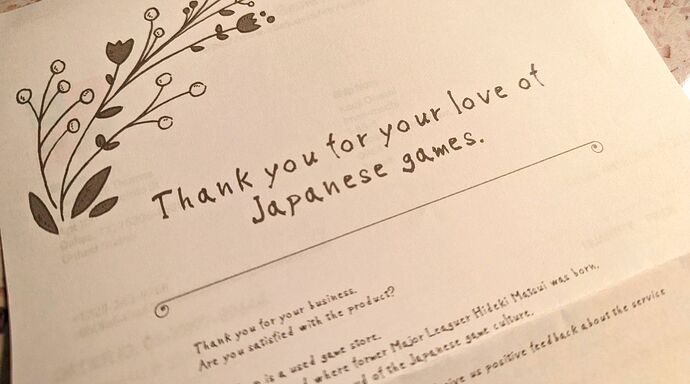 Thank you for your love of
Japanese games.
Thank you for your business.
Are you satisfied with the product?
is a used game store.
where former Major Leaguer Hideki Matsui was born,
of the Japanese game culture.
us positive feedback about the service